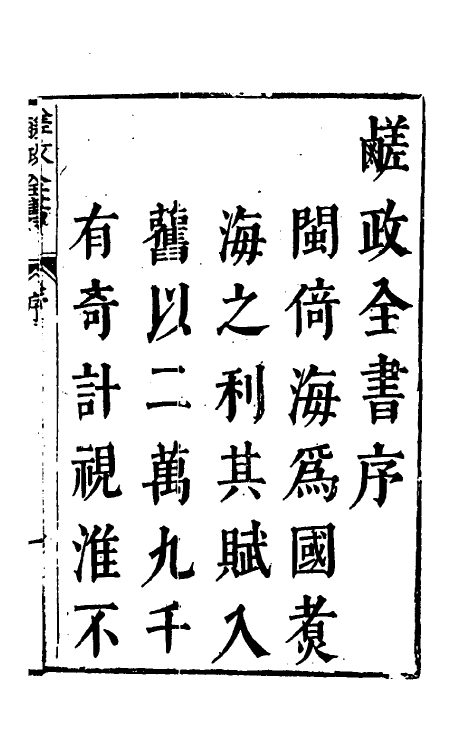 鹺政全書序
閩倚海爲國煑
海之利其賦入
舊以二萬九千
有奇計視淮不
鹺政全書
序
一